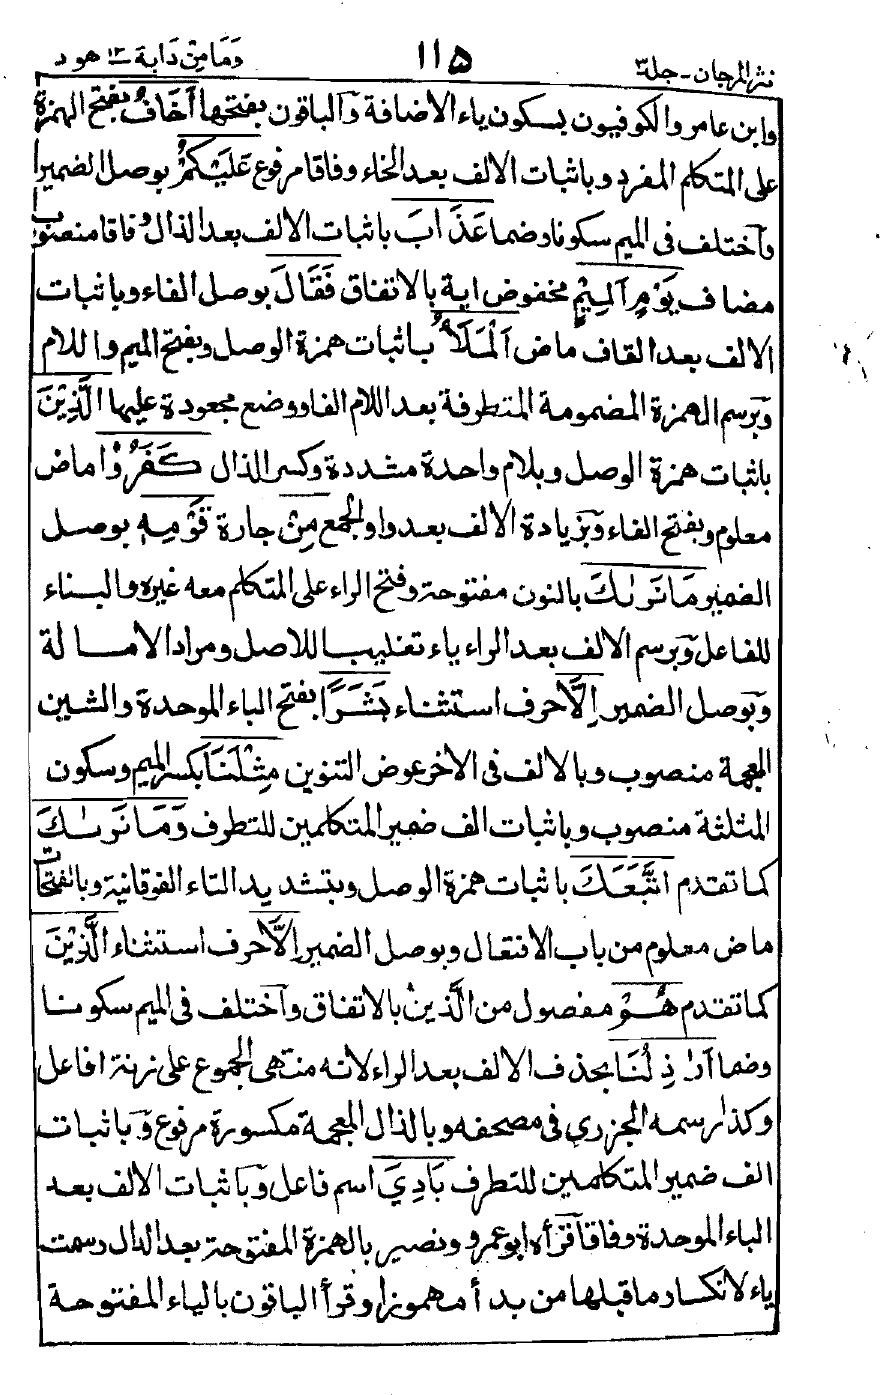 نثر المرجان - جلد ٣ ١١٥ وَمَا مِنْ دَابة ١٢ هود
وابن عامر والكوفيون بسكون ياء الاضافة والباقون بفتحها اَخَافُ بفتح الهمزة
على المتكلم المفرد وباثبات الالف بعد الخاء وفاقا مرفوع عَلَيْكُمْ بوصل الضمير
وآختلف فى الميم سكونا وضما عَذَابَ باثبات الالف بعد الذال وفاقا منصوب
مضاف يَوْمٍ اَلِيْمٍ مخفوض اية بالاتفاق فَقَالَ بوصل الفاء وباثبات
الالف بعد القاف ماض الْمَلَأُ باثبات همزة الوصل وبفتح الميم واللام
وَبرسم الهمزة المضمومة المتطرفة بعد اللام الفا ووضع مجعودة عليها الَّذِيْنَ
باثبات همزة الوصل وبلام واحدة مشددة وكسر الذال كَفَرُوْا ماض
معلوم وبفتح الفاء وَبزيادة الالف بعد واو الجمع مِنْ جارة قَوْمِهٖ بوصل
الضمير مَا نَرٰىكَ بالنون مفتوحة وفتح الراء على المتكلم معه غيره والبناء
للفاعل وَبرسم الالف بعد الراء ياء تغليبا للاصل ومراد الامالة
وَبوصل الضمير اِلَّا حرف استثناء بَشَرًا بفتح الباء الموحدة والشين
المعجمة منصوب وبالالف فى الاخر عوض التنوين مِثْلَنَا بكسر الميم وسكون
المثلثة منصوب وباثبات الف ضمير المتكلمين للتطرف وَمَا نَرٰىكَ
كما تقدم اتَّبَعَكَ باثبات همزة الوصل وبتشديد التاء الفوقانية وبالفتحات
ماض معلوم من باب الافتعال وبوصل الضمير اِلَّا حرف استثناء الَّذِيْنَ
كما تقدم هُمْ مفصول من الَّذِيْنَ بالاتفاق وآختلف فى الميم سكونا
وضما اَرَاذِلُنَا بحذف الالف بعد الراء لانه منتهى الجموع على زنة افاعل
وكذا رسمه الجزري فى مصحفه وبالذال المعجمة مكسورة مرفوع وَباثبات
الف ضمير المتكلمين للتطرف بَادِيَ اسم فاعل وَباثبات الالف بعد
الباء الموحدة وفاقا قرأه ابو عمرو ونصير بالهمزة المفتوحة بعد الدال رسمت
ياء لانكسار ما قبلها من بدأ مهموزا وقرأ الباقون بالياء المفتوحة